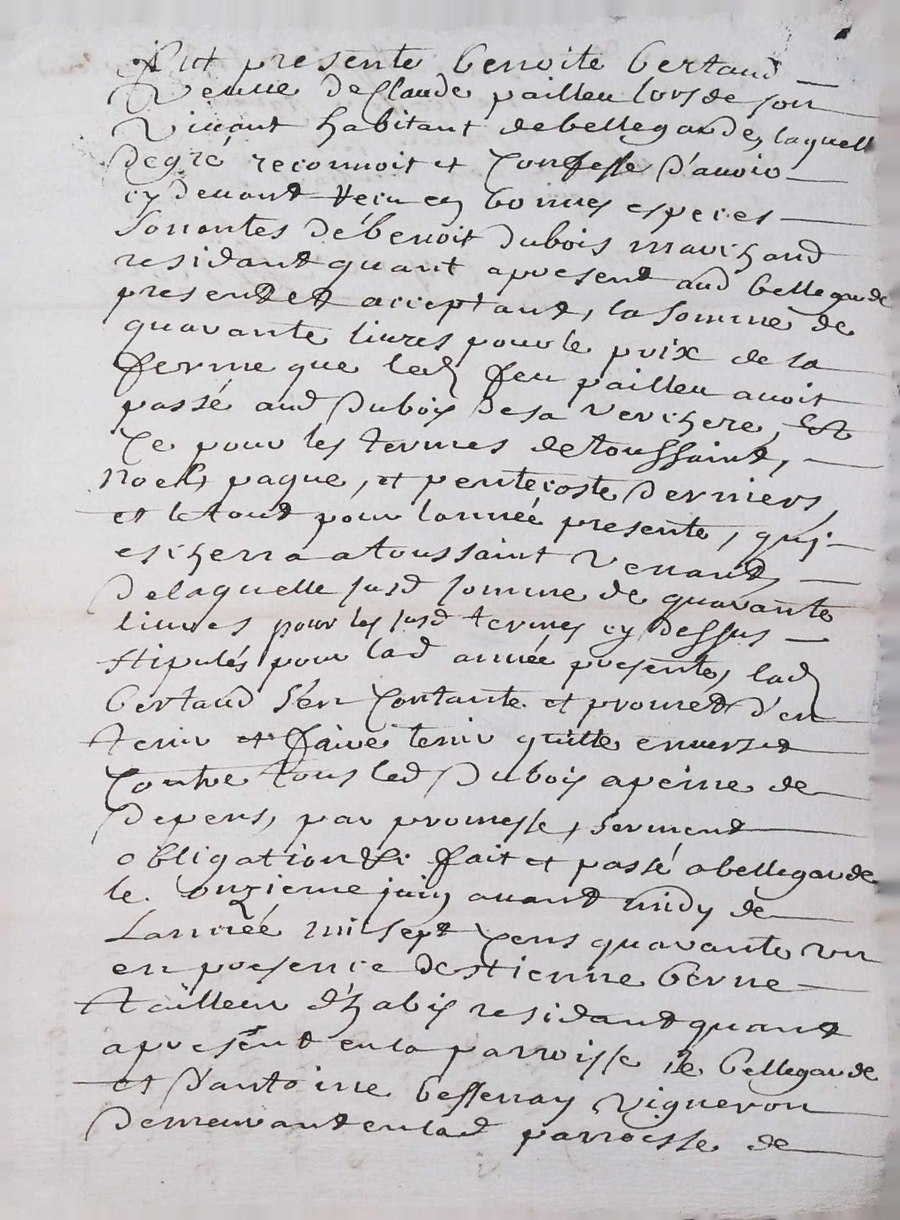 fut presente benoite bertaud
veuve de Claude pailleu lors de son
vivant habitant de bellegarde, laquell
de gré reconnoit et Confesse d'avoir
cy devant recu en bonnes especes
sonnantes de benoit dubois marchand
residant quant apresent aud bellegarde
present et acceptant, la somme de
quarante livres pour le prix de la
ferme que led feu pailleu avoit
passé aud Dubois de sa verchere, Et
Ce pour les termes de toussaint,
noel, paque, et pentecoste derniers,
et le tout pour l'année presente, qui
escherra a toussaint venant,
de laquelle susd somme de quarante
livres pour les susd termes cy dessus
stipulés pour lad année presente, lad
bertaud s'en Contante et promet d'en
tenir et faire tenir quitte envers et
Contre tous led Dubois a peine de
depens, par promesse, serment
obligation &c fait et passé a bellegarde
le onzieme juin avant midy de
L'année mil sept Cens quarante un
en presence d'estienne berne
tailleur d'habis residant quant
apresent en la parroisse de bellegarde
et d'antoine bessenay vigneron
demeurant en lad parroisse de